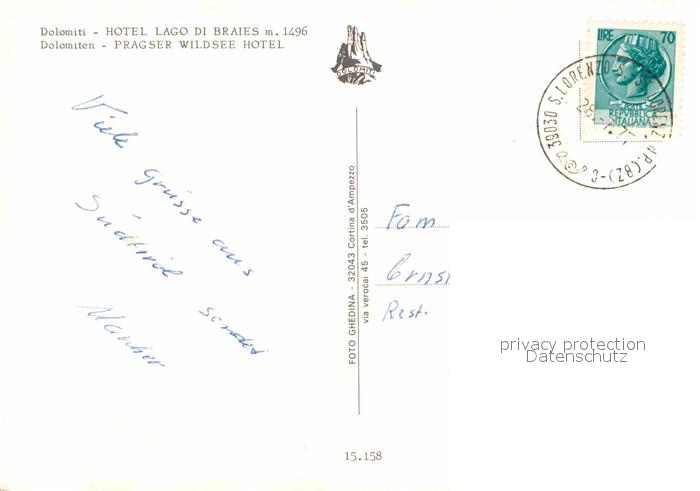 Dolomiti - HOTEL LAGO DI BRAIES m. 1496
Dolomiten - PRAGSER WILDSEE HOTEL
DOLOMITI
LIRE 70
POSTE
REPVBBLICA
ITALIANA
39030 S. LORENZO
(BZ)
Viele
Grüsse aus
Südtirol
sendet
Fam
Ernst
Rest.
FOTO GHEDINA - 32043 Cortina d'Ampezzo
via verocai 45 - tel. 3505
privacy protection
Datenschutz
15.158